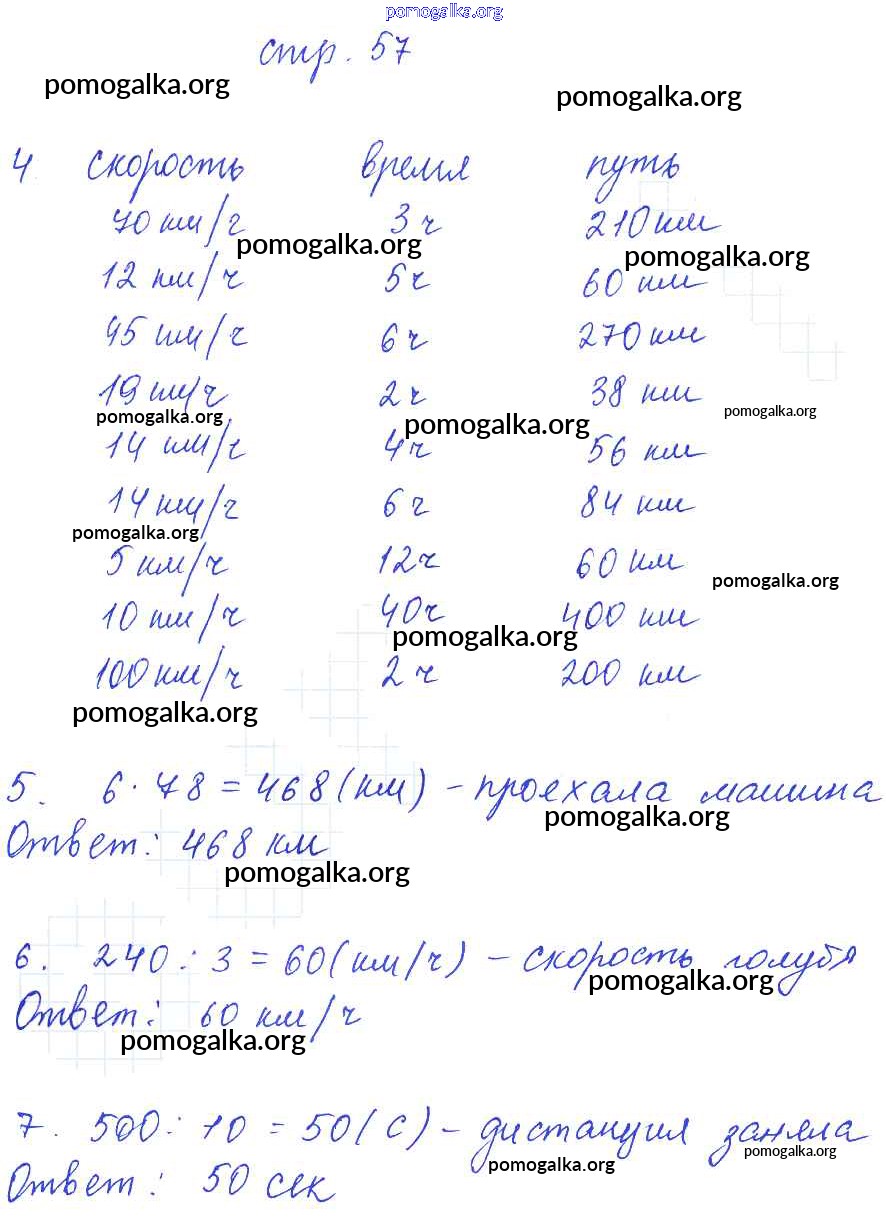 pomogalka.org
стр. 57
pomogalka.org pomogalka.org
4 скорость время путь
70 км/г 3 ч 210 км
pomogalka.org pomogalka.org
12 км/ч 5 ч 60 км
45 км/ч 6 ч 270 км
19 км/ч 2 ч 38 км
pomogalka.org pomogalka.org pomogalka.org
14 км/ч 4 ч 56 км
14 км/ч 6 ч 84 км
pomogalka.org
5 км/ч 12 ч 60 км
pomogalka.org
10 км/ч 40 ч 400 км
pomogalka.org
100 км/ч 2 ч 200 км
pomogalka.org
5. 6 · 78 = 468 (км) - проехала машина
pomogalka.org
Ответ: 468 км
pomogalka.org
6. 240 : 3 = 60 (км/ч) - скорость голубя
pomogalka.org
Ответ: 60 км/ч
pomogalka.org
7. 500 : 10 = 50 (с) - дистанция заняла
pomogalka.org pomogalka.org
Ответ: 50 сек